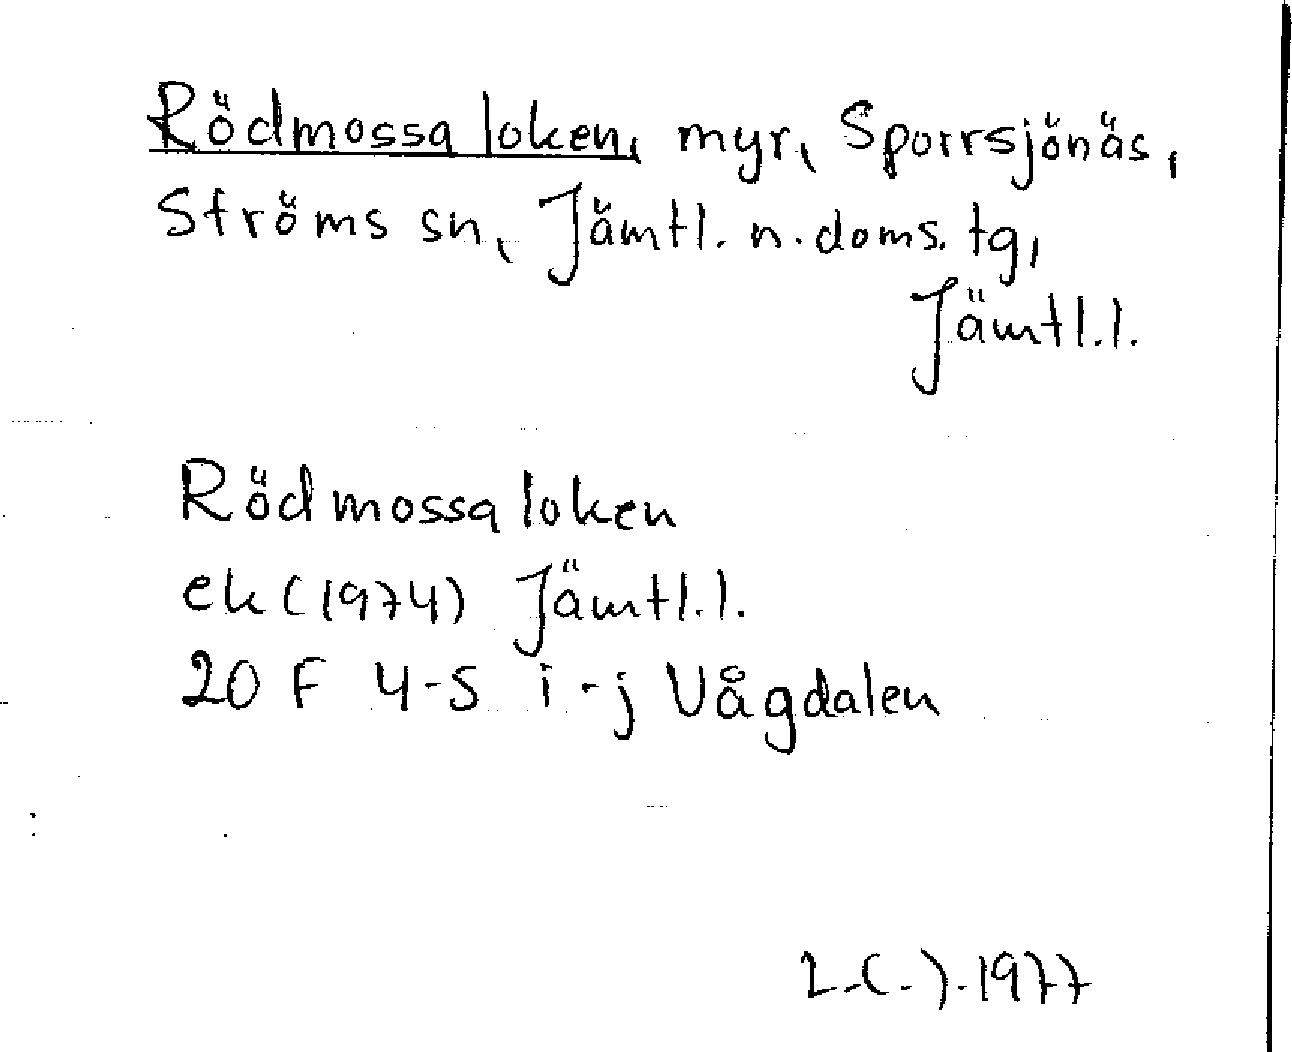 Rödmossa loken, myr, Sporrsjönäs,
Ströms sn, Jämtl. n. doms. tg,
Jämtl.l.
Rödmossa loken
ek (1974) Jämtl.l.
20 F 4-5 i-j Vågdalen
1977